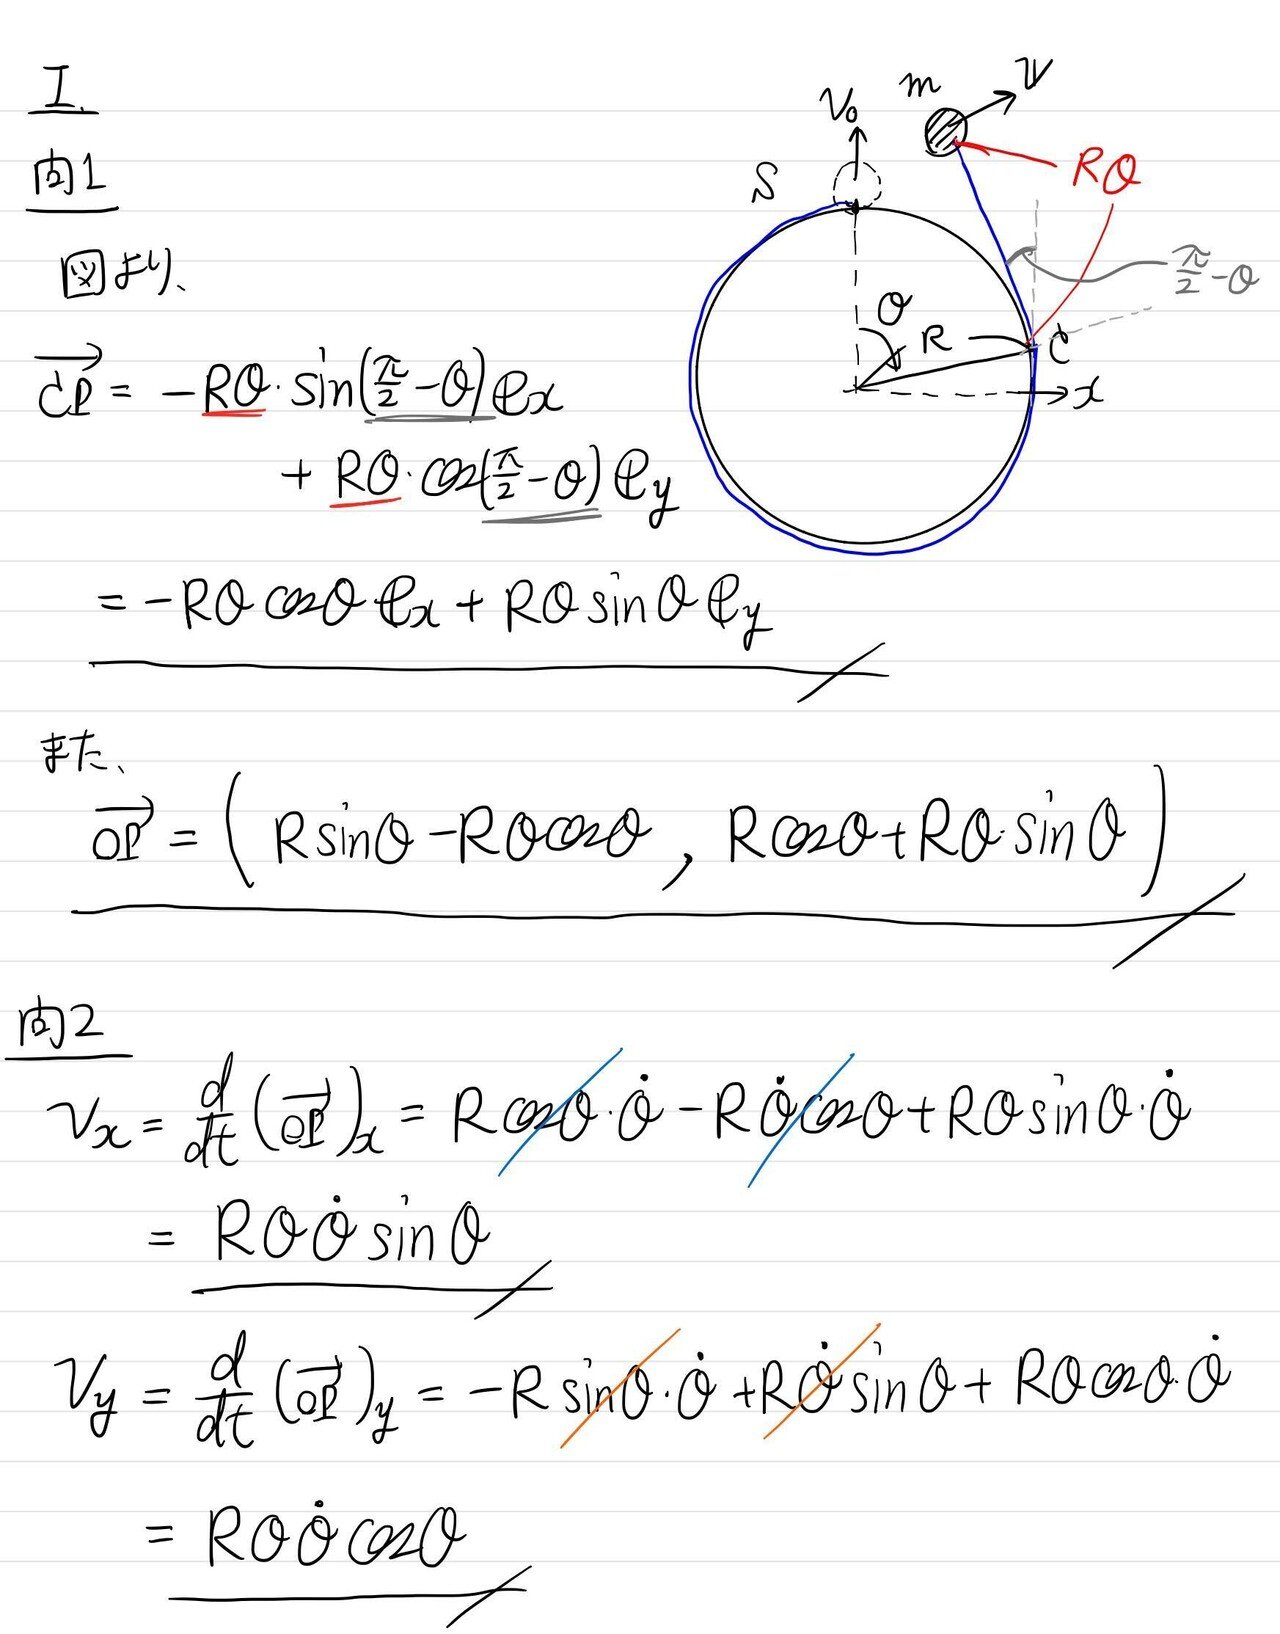 I.
問1
図より、
m
V
V₀
S
Rθ
π/2-θ
θ
R
C
x
→CP = -Rθ·sin(π/2-θ)eₓ
+ Rθ·cos(π/2-θ)e_y
= -Rθcosθeₓ + Rθsinθe_y
また、
→OP = (Rsinθ-Rθcosθ, Rcosθ+Rθ·sinθ)
問2
Vₓ = d/dt(→OP)ₓ = Rcosθ·θ̇ - Rθ̇cosθ + Rθsinθ·θ̇
= Rθθ̇sinθ
V_y = d/dt(→OP)_y = -Rsinθ·θ̇ + Rθ̇sinθ + Rθcosθ·θ̇
= Rθθ̇cosθ